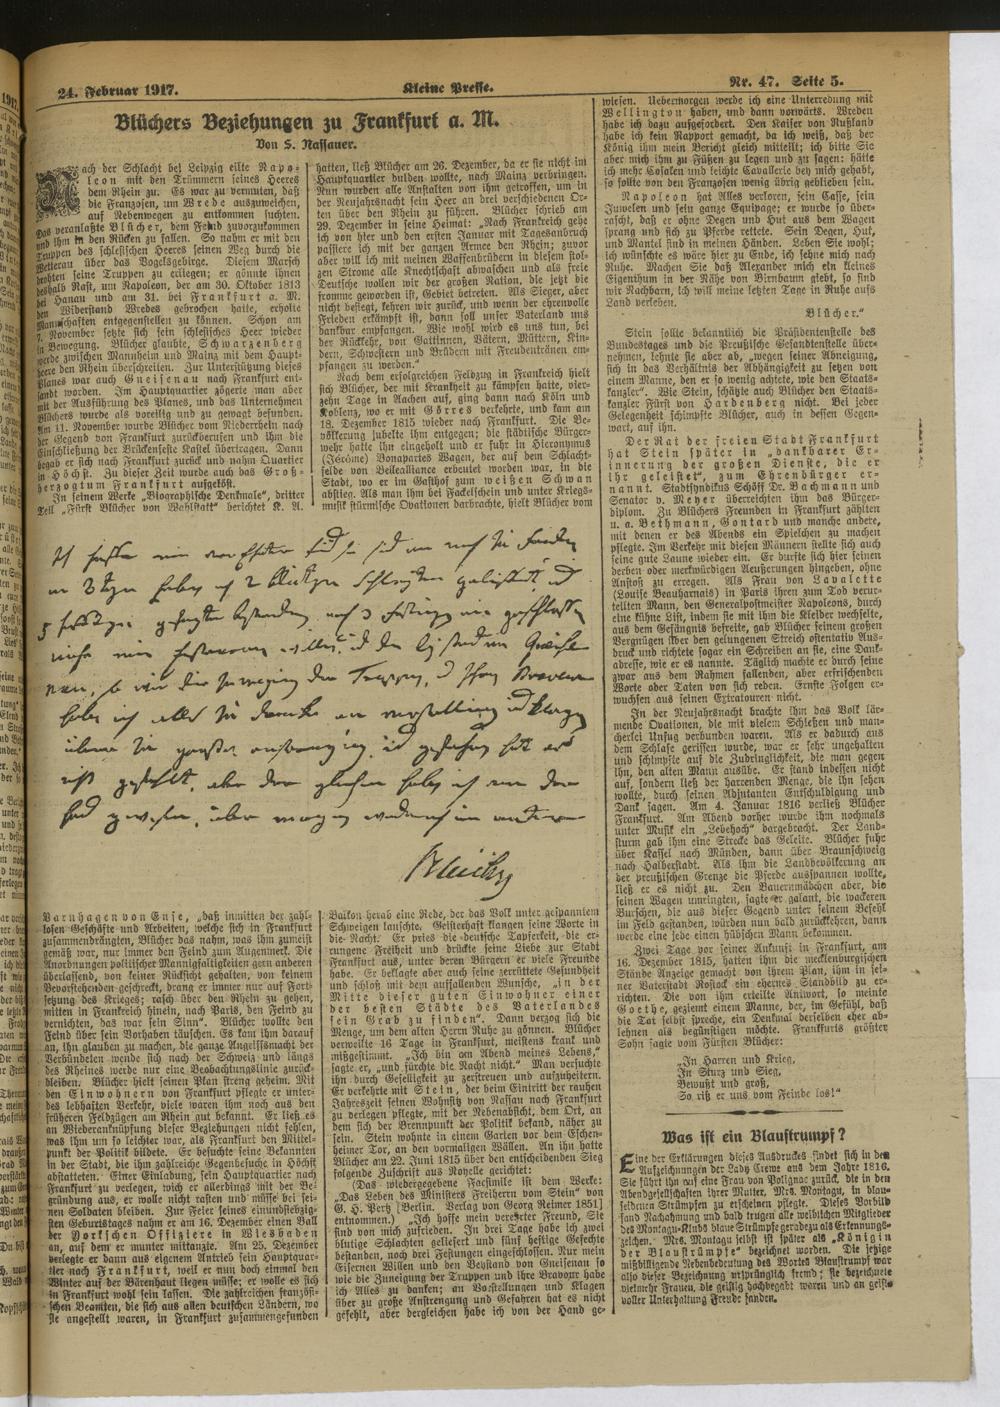 24. Februar 1917.
Kleine Presse.
Nr. 47. Seite 5.
Blüchers Beziehungen zu Frankfurt a. M.
Von S. Nassauer.
Nach der Schlacht bei Leipzig eilte Napo-
leon mit den Trümmern seines Heeres
dem Rhein zu. Es war zu vermuten, daß
die Franzosen, um Wrede auszuweichen,
auf Nebenwegen zu entkommen suchten.
Das veranlaßte Blücher, dem Feind zuvorzukommen
und ihm in den Rücken zu fallen. So nahm er mit den
Truppen des schlesischen Heeres seinen Weg durch die
Wetterau über das Vogelsgebirge. Diesem Marsch
drohten seine Truppen zu erliegen; er gönnte ihnen
deshalb Rast, um Napoleon, der am 30. Oktober 1813
bei Hanau und am 31. bei Frankfurt a. M.
den Widerstand Wredes gebrochen hatte, erholte
Mannschaften entgegenstellen zu können. Schon am
7. November setzte sich sein schlesisches Heer wieder
in Bewegung. Blücher glaubte, Schwarzenberg
werde zwischen Mannheim und Mainz mit dem Haupt-
heere den Rhein überschreiten. Zur Unterstützung dieses
Planes war auch Gneisenau nach Frankfurt ent-
sandt worden. Im Hauptquartier zögerte man aber
mit der Ausführung des Planes, und das Unternehmen
Blüchers wurde als voreilig und zu gewagt befunden.
Am 11. November wurde Blücher vom Niederrhein nach
der Gegend von Frankfurt zurückberufen und ihm die
Einschließung der Brückenfeste Kastel übertragen. Dann
begab er sich nach Frankfurt zurück und nahm Quartier
in Höchst. Zu dieser Zeit wurde auch das Groß-
herzogtum Frankfurt aufgelöst.
In seinem Werke „Biographische Denkmale“, dritter
Teil „Fürst Blücher von Wahlstatt“ berichtet K. A.
Blücher
Varnhagen von Ense, „daß inmitten der zahl-
losen Geschäfte und Arbeiten, welche sich in Frankfurt
zusammendrängten, Blücher das nahm, was ihm zumeist
gemäß war, nur immer den Feind zum Augenmerk. Die
Anordnungen politischer Mannigfaltigkeiten gern anderen
überlassend, von keiner Rücksicht gehalten, von keinem
Bevorstehenden geschreckt, drang er immer nur auf Fort-
setzung des Krieges; rasch über den Rhein zu gehen,
mitten in Frankreich hinein, nach Paris, den Feind zu
vernichten, das war sein Sinn“. Blücher wollte den
Feind über sein Vorhaben täuschen. Es kam ihm darauf
an, ihn glauben zu machen, die ganze Angriffsmacht der
Verbündeten wende sich nach der Schweiz und längs
des Rheines werde nur eine Beobachtungslinie zurück-
bleiben. Blücher hielt seinen Plan streng geheim. Mit
den Einwohnern von Frankfurt pflegte er unter-
des lebhaften Verkehr, viele waren ihm noch aus den
früheren Feldzügen am Rhein gut bekannt. Er ließ es
an Wiederanknüpfung dieser Beziehungen nicht fehlen,
was ihm um so leichter war, als Frankfurt den Mittel-
punkt der Politik bildete. Er besuchte seine Bekannten
in der Stadt, die ihm zahlreiche Gegenbesuche in Höchst
abstatteten. Einer Einladung, sein Hauptquartier nach
Frankfurt zu verlegen, wich er allerdings mit der Be-
gründung aus, er wolle nicht rasten und müsse bei sei-
nen Soldaten bleiben. Zur Feier seines einundsiebzig-
sten Geburtstages nahm er am 16. Dezember einen Ball
der Yorkschen Offiziere in Wiesbaden
an, auf dem er munter mittanzte. Am 25. Dezember
verlegte er dann aus eigenem Antrieb sein Hauptquar-
tier nach Frankfurt, weil er nun doch einmal den
Winter auf der Bärenhaut liegen müsse; er wolle es sich
in Frankfurt wohl sein lassen. Die zahlreichen französi-
schen Beamten, die sich aus allen deutschen Ländern, wo
sie angestellt waren, in Frankfurt zusammengefunden
hatten, ließ Blücher am 26. Dezember, da er sie nicht im
Hauptquartier dulden wollte, nach Mainz verbringen.
Nun wurden alle Anstalten von ihm getroffen, um in
der Neujahrsnacht sein Heer an drei verschiedenen Or-
ten über den Rhein zu führen. Blücher schrieb am
29. Dezember in seine Heimat: „Nach Frankreich gehe
ich von hier und den ersten Januar mit Tagesanbruch
passiere ich mit der ganzen Armee den Rhein; zuvor
aber will ich mit meinen Waffenbrüdern in diesem stol-
zen Strome alle Knechtschaft abwaschen und als freie
Deutsche wollen wir der großen Nation, die jetzt die
fromme geworden ist, Gebiet betreten. Als Sieger, aber
nicht besiegt, kehren wir zurück, und wenn der ehrenvolle
Frieden erkämpft ist, dann soll unser Vaterland uns
dankbar empfangen. Wie wohl wird es uns tun, bei
der Rückkehr, von Gattinnen, Vätern, Müttern, Kin-
dern, Schwestern und Brüdern mit Freudentränen em-
pfangen zu werden.“
Nach dem erfolgreichen Feldzug in Frankreich hielt
sich Blücher, der mit Krankheit zu kämpfen hatte, vier-
zehn Tage in Aachen auf, ging dann nach Köln und
Koblenz, wo er mit Görres verkehrte, und kam am
18. Dezember 1815 wieder nach Frankfurt. Die Be-
völkerung jubelte ihm entgegen; die städtische Bürger-
wehr hatte ihn eingeholt und er fuhr in Hieronymus
(Jérôme) Bonapartes Wagen, der auf dem Schlacht-
felde von Bellealliance erbeutet worden war, in die
Stadt, wo er im Gasthof zum weißen Schwan
abstieg. Als man ihm bei Fackelschein und unter Kriegs-
musik stürmische Ovationen darbrachte, hielt Blücher vom
Balkon herab eine Rede, der das Volk unter gespanntem
Schweigen lauschte. Geisterhaft klangen seine Worte in
die Nacht. Er pries die deutsche Tapferkeit, die er-
rungene Freiheit und drückte seine Liebe zur Stadt
Frankfurt aus, unter deren Bürgern er viele Freunde
habe. Er beklagte aber auch seine zerrüttete Gesundheit
und schloß mit dem auffallenden Wunsche, „in der
Mitte dieser guten Einwohner einer
der besten Städte des Vaterlandes
sein Grab zu finden“. Dann verzog sich die
Menge, um dem alten Herrn Ruhe zu gönnen. Blücher
verweilte 16 Tage in Frankfurt, meistens krank und
mißgestimmt. „Ich bin am Abend meines Lebens,“
sagte er, „und fürchte die Nacht nicht.“ Man versuchte
ihn durch Geselligkeit zu zerstreuen und aufzuheitern.
Er verkehrte mit Stein, der beim Eintritt der rauhen
Jahreszeit seinen Wohnsitz von Nassau nach Frankfurt
zu verlegen pflegte, mit der Nebenabsicht, dem Ort, an
dem sich der Brennpunkt der Politik befand, näher zu
sein. Stein wohnte in einem Garten vor dem Eschen-
heimer Tor, an den vormaligen Wällen. An ihn hatte
Blücher am 22. Juni 1815 über den entscheidenden Sieg
folgende Zuschrift aus Noyelle gerichtet:
(Das wiedergegebene Facsimile ist dem Werke:
„Das Leben des Ministers Freiherrn vom Stein“ von
G. H. Pertz [Berlin. Verlag von Georg Reimer 1851]
entnommen.) „Ich hoffe mein verehrter Freund, Sie
sind von mich zufrieden. In drei Tage habe ich zwei
blutige Schlachten geliefert und fünf heftige Gefechte
bestanden, noch drei Festungen eingeschlossen. Nur mein
Eisernen Willen und den Beystand von Gneisenau so
wie die Zuneigung der Truppen und ihre Bravour habe
ich Alles zu danken; an Vorstellungen und Klagen
über zu große Anstrengung und Gefahren hat es nicht
gefehlt, aber dergleichen habe ich von der Hand ge-
wiesen. Uebermorgen werde ich eine Unterredung mit
Wellington haben, und dann vorwärts. Wreden
habe ich dazu aufgefordert. Den Kaiser von Rußland
habe ich kein Rapport gemacht, da ich weiß, daß der
König ihm mein Bericht gleich mitteilt; ich bitte Sie
aber mich ihm zu Füßen zu legen und zu sagen: hätte
ich mehr Cosaken und leichte Cavallerie bey mich gehabt,
so sollte von den Franzosen wenig übrig geblieben sein.
Napoleon hat Alles verloren, sein Casse, sein
Juwelen und sein ganze Equipage; er wurde so über-
rascht, daß er ohne Degen und Hut aus dem Wagen
sprang und sich zu Pferde rettete. Sein Degen, Hut,
und Mantel sind in meinen Händen. Leben Sie wohl;
ich wünschte es wäre hier zu Ende, ich sehne mich nach
Ruhe. Machen Sie daß Alexander mich ein kleines
Eigenthum in der Nähe von Birnbaum giebt, so sind
wir Nachbarn, ich will meine letzten Tage in Ruhe aufs
Land verleben.
Blücher.“
Stein sollte bekanntlich die Präsidentenstelle des
Bundestages und die Preußische Gesandtenstelle über-
nehmen, lehnte sie aber ab, „wegen seiner Abneigung,
sich in das Verhältnis der Abhängigkeit zu setzen von
einem Manne, den er so wenig achtete, wie den Staats-
kanzler“. Wie Stein, schätzte auch Blücher den Staats-
kanzler Fürst von Hardenberg nicht. Bei jeder
Gelegenheit schimpfte Blücher, auch in dessen Gegen-
wart, auf ihn.
Der Rat der freien Stadt Frankfurt
hat Stein später in „dankbarer Er-
innerung der großen Dienste, die er
ihr geleistet“, zum Ehrenbürger er-
nannt. Stadtsyndikus Schöff Dr. Bachmann und
Senator v. Meyer überreichten ihm das Bürger-
diplom. Zu Blüchers Freunden in Frankfurt zählten
u. a. Bethmann, Gontard und manche andere,
mit denen er des Abends ein Spielchen zu machen
pflegte. Im Verkehr mit diesen Männern stellte sich auch
seine gute Laune wieder ein. Er durfte sich hier seinen
derben oder merkwürdigen Aeußerungen hingeben, ohne
Anstoß zu erregen. Als Frau von Lavalette
(Louise Beauharnais) in Paris ihren zum Tod verur-
teilten Mann, den Generalpostmeister Napoleons, durch
eine kühne List, indem sie mit ihm die Kleider wechselte,
aus dem Gefängnis befreite, gab Blücher seinem großen
Vergnügen über den gelungenen Streich ostentativ Aus-
druck und richtete sogar ein Schreiben an sie, eine Dank-
adresse, wie er es nannte. Täglich machte er durch seine
zwar aus dem Rahmen fallenden, aber erfrischenden
Worte oder Taten von sich reden. Ernste Folgen er-
wuchsen aus seinen Extratouren nicht.
In der Neujahrsnacht brachte ihm das Volk lär-
mende Ovationen, die mit vielem Schießen und man-
cherlei Unfug verbunden waren. Als er dadurch aus
dem Schlafe gerissen wurde, war er sehr ungehalten
und schimpfte auf die Zudringlichkeit, die man gegen
ihn, den alten Mann ausübe. Er stand indessen nicht
auf, sondern ließ der harrenden Menge, die ihn sehen
wollte, durch seinen Adjutanten Entschuldigung und
Dank sagen. Am 4. Januar 1816 verließ Blücher
Frankfurt. Am Abend vorher wurde ihm nochmals
unter Musik ein „Lebehoch“ dargebracht. Der Land-
sturm gab ihm eine Strecke das Geleite. Blücher fuhr
über Kassel nach Münden, dann über Braunschweig
nach Halberstadt. Als ihm die Landbevölkerung an
der preußischen Grenze die Pferde ausspannen wollte,
ließ er es nicht zu. Den Bauernmädchen aber, die
seinen Wagen umringten, sagte er galant, die wackeren
Burschen, die aus dieser Gegend unter seinem Befehl
im Feld gestanden, würden nun bald zurückkehren, dann
werde eine jede einen hübschen Mann bekommen.
Zwei Tage vor seiner Ankunft in Frankfurt, am
16. Dezember 1815, hatten ihm die mecklenburgischen
Stände Anzeige gemacht von ihrem Plan, ihm in sei-
ner Vaterstadt Rostock ein ehernes Standbild zu er-
richten. Die von ihm erteilte Antwort, so meinte
Goethe, geziemt einem Manne, der, im Gefühl, daß
die Tat selbst spreche, ein Denkmal derselben eher ab-
lehnen als begünstigen möchte. Frankfurts größter
Sohn sagte vom Fürsten Blücher:
„In Harren und Krieg,
In Sturz und Sieg,
Bewußt und groß,
So riß er uns vom Feinde los!“
Was ist ein Blaustrumpf?
Eine der Erklärungen dieses Ausdruckes findet sich in den
Aufzeichnungen der Lady Crewe aus dem Jahre 1816.
Sie führt ihn auf eine Frau von Polignac zurück, die in den
Abendgesellschaften ihrer Mutter, Mrs. Montagu, in blau-
seidenen Strümpfen zu erscheinen pflegte. Dieses Vorbild
fand Nachahmung und bald trugen alle weiblichen Mitglieder
des Montagu-Klubs blaue Strümpfe geradezu als Erkennungs-
zeichen. Mrs. Montagu selbst ist später als „Königin
der Blaustrümpfe“ bezeichnet worden. Die jetzige
mißbilligende Nebenbedeutung des Wortes Blaustrumpf war
also dieser Bezeichnung ursprünglich fremd; sie bezeichnete
vielmehr Frauen, die geistig hochbegabt waren und an geist-
voller Unterhaltung Freude fanden.